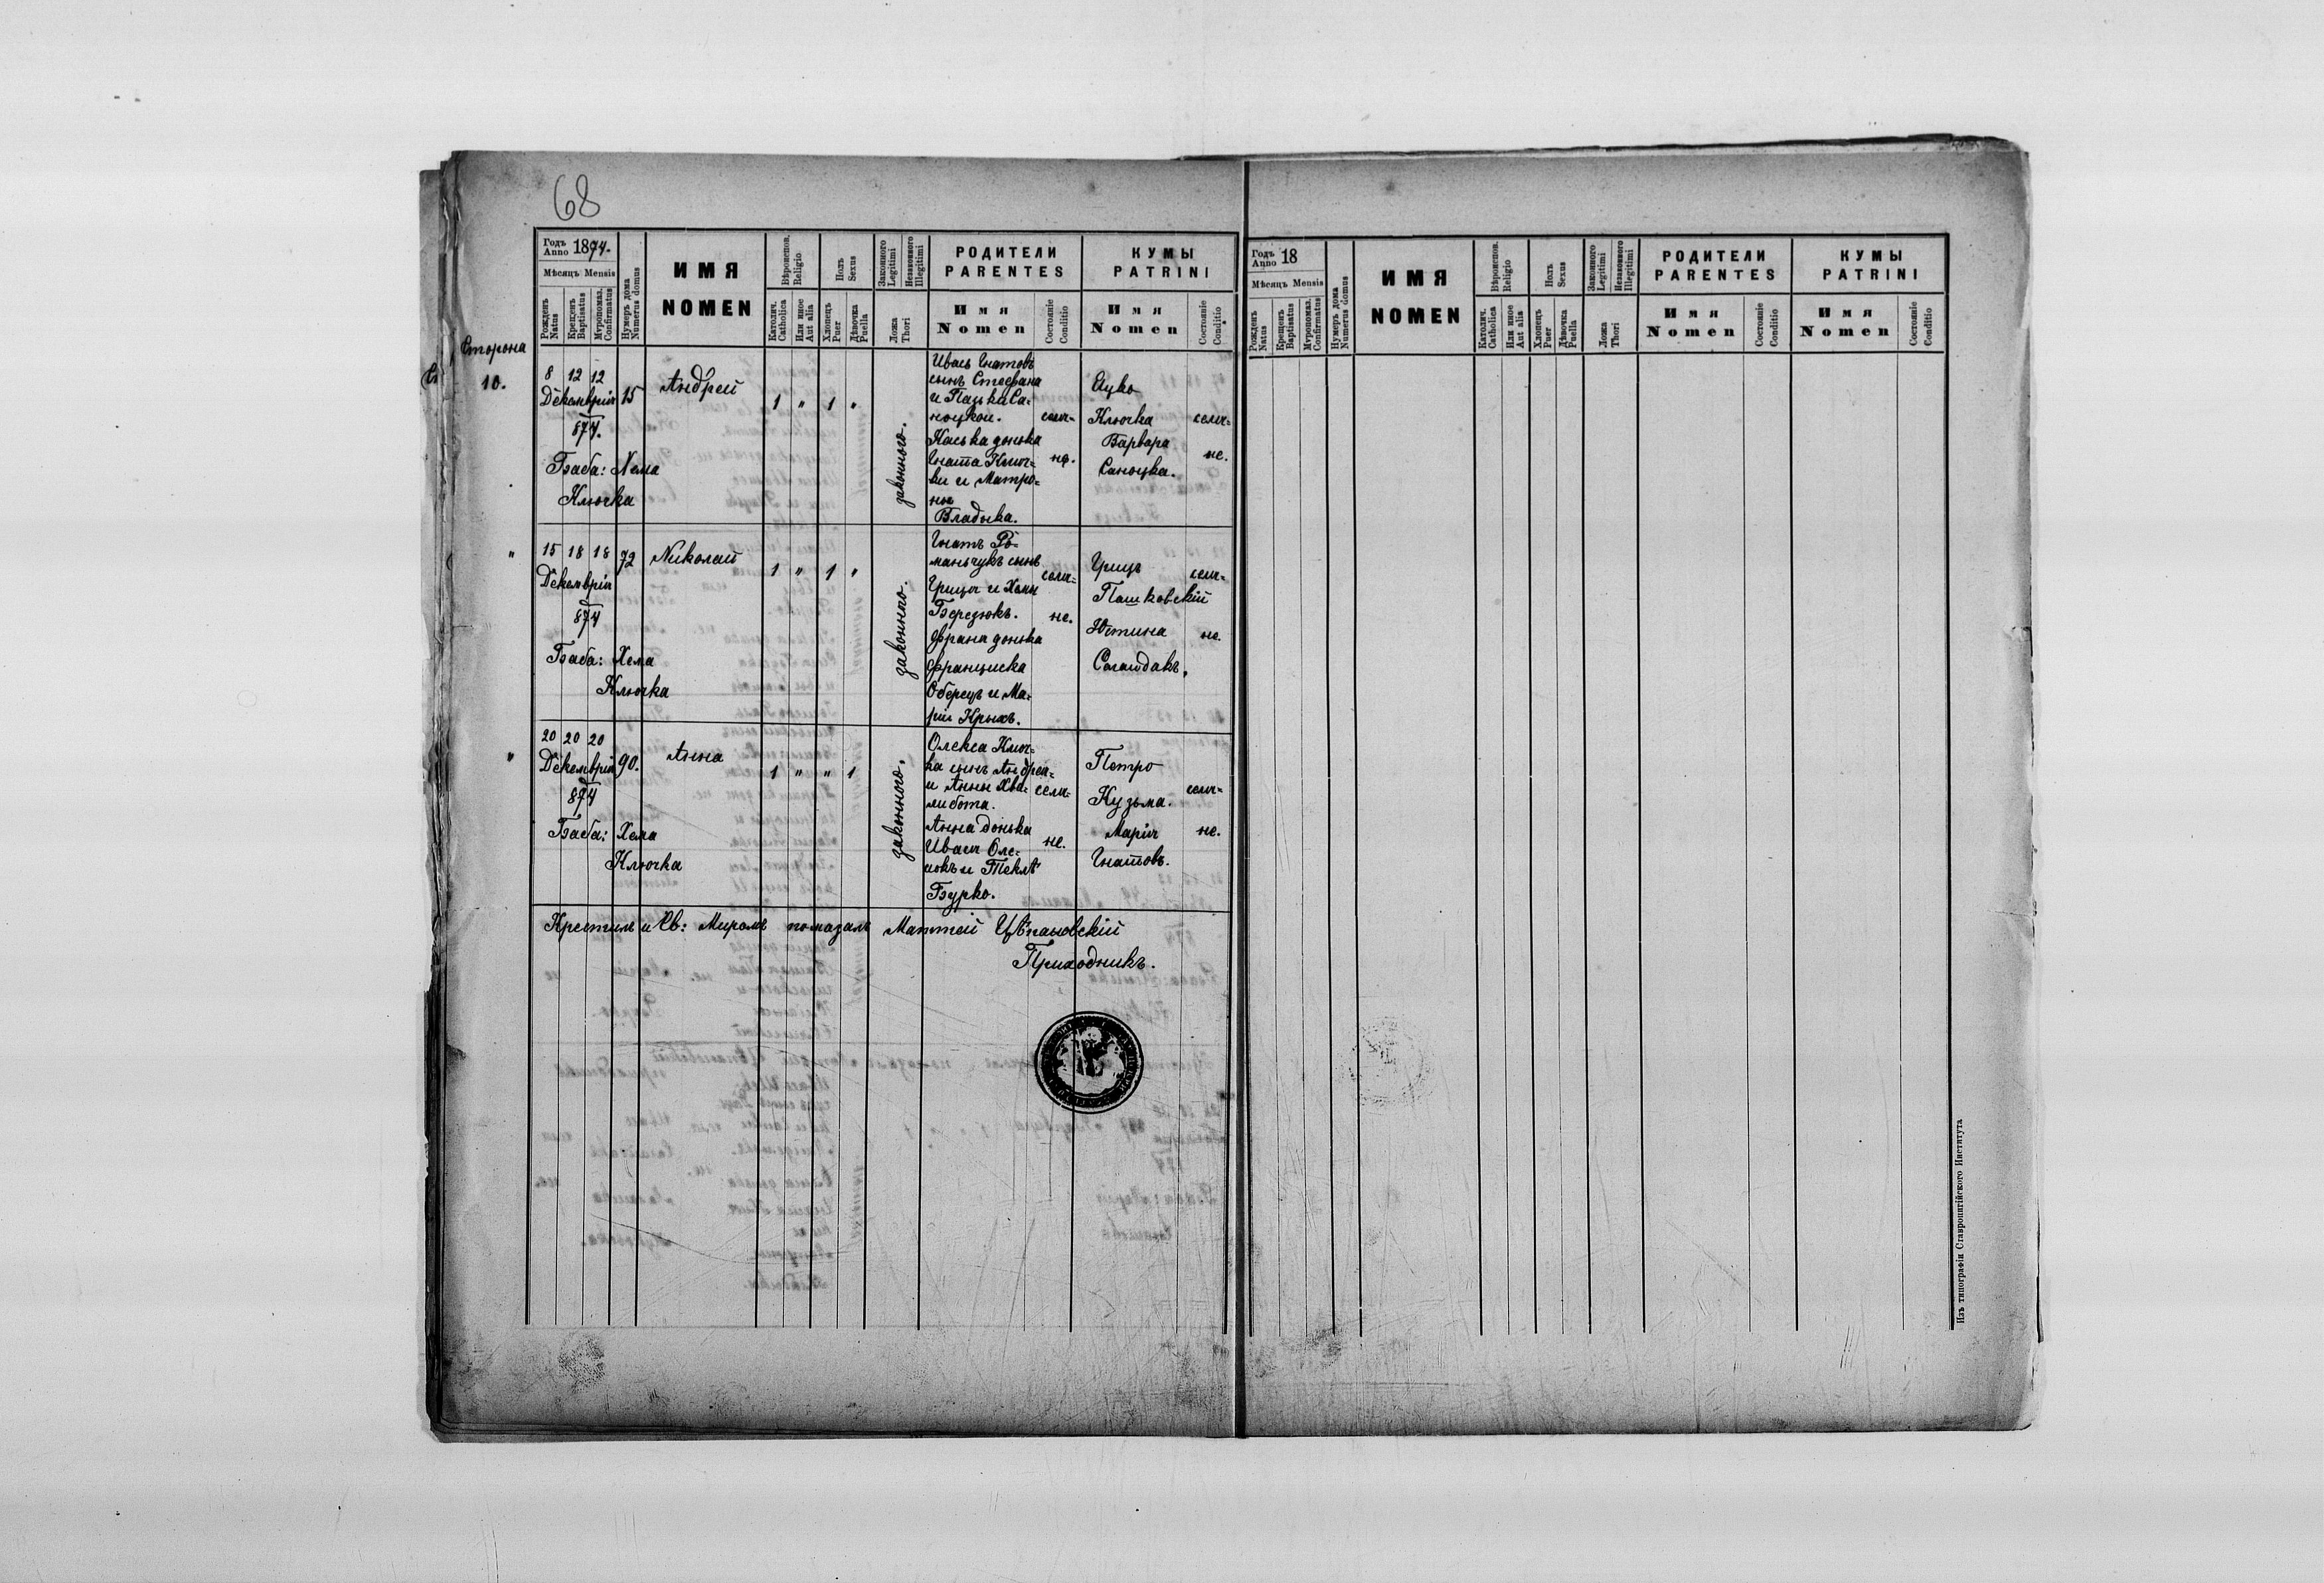 68
Сторона
10.
Годъ 1874.
Anno
Мѣсяцъ Mensis
Рожденъ Natus
Крещенъ Baptisatus
Мѵропомаз. Confirmatus
Нумеръ дома Numerus domus
ИМЯ
NOMEN
Вѣроиспов. Religio
Католич. Catholica
Или иное Aut alia
Полъ Sexus
Хлопецъ Puer
Дѣвочка Puella
Законного Legitimi
Незаконного Illegitimi
Ложа Thori
РОДИТЕЛИ
PARENTES
Имя
Nomen
Состояніе Conditio
КУМЫ
PATRINI
Имя
Nomen
Состояніе Conditio
8 12 12
Декамврія 15
874.
Баба:
Ключка
Андрей
1 " 1 "
законного.
Ивась Гнатовъ
сынъ Стефана
и Пазьки Са-
ноцкои.
Каська донька
Гната Ключ-
ки и Матро-
ны
Владыка.
селя-
не.
Яцко
Ключка
Варвара
Саноцка.
селя-
не.
" 15 18 18 72
Декемврія
874
Баба: Хема
Ключка
Николай
1 " 1 "
законного.
Гнатъ Ро-
маньчукъ сынъ
Грица и Хемы
Березюкъ.
Франа донька
Франциска
Оберецъ и Ма-
ріи Крыхъ.
селя-
не.
Грицъ
Пашковскій
Юстина
Сагайдакъ.
селя-
не.
" 20 20 20
Декемврія 90.
874
Баба: Хема
Ключка
Анна
1 " " 1
законного.
Олекса Клюг-
ка сынъ Андрея
и Анны Хва-
либота.
Анна донька
Ивася Оле-
иокъ и Теклѣ
Бурко.
селя-
не.
Петро
Кузьма.
Марія
Гнатовъ.
селя-
не.
Крестилъ и Св: Миромъ помазалъ Маттей Цѣпановскій
Приходникъ.
Годъ 18
Anno
Мѣсяцъ Mensis
Рожденъ Natus
Крещенъ Baptisatus
Мѵропомаз. Confirmatus
Нумеръ дома Numerus domus
ИМЯ
NOMEN
Вѣроиспов. Religio
Католич. Catholica
Или иное Aut alia
Полъ Sexus
Хлопецъ Puer
Дѣвочка Puella
Законного Legitimi
Незаконного Illegitimi
Ложа Thori
РОДИТЕЛИ
PARENTES
Имя
Nomen
Состояніе Conditio
КУМЫ
PATRINI
Имя
Nomen
Состояніе Conditio
Изъ типографіи Ставропигійского Института